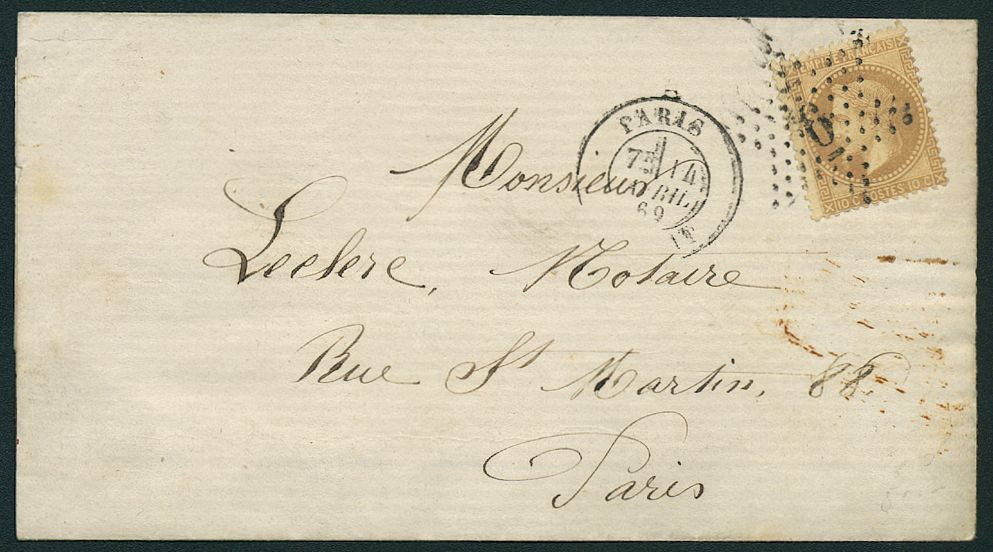 EMPIRE FRANÇAIS
6
10 C. POSTES 10 C.
PARIS
14
AVRIL
69
Monsieur
Leclere, Notaire
Rue St Martin, 88.
Paris